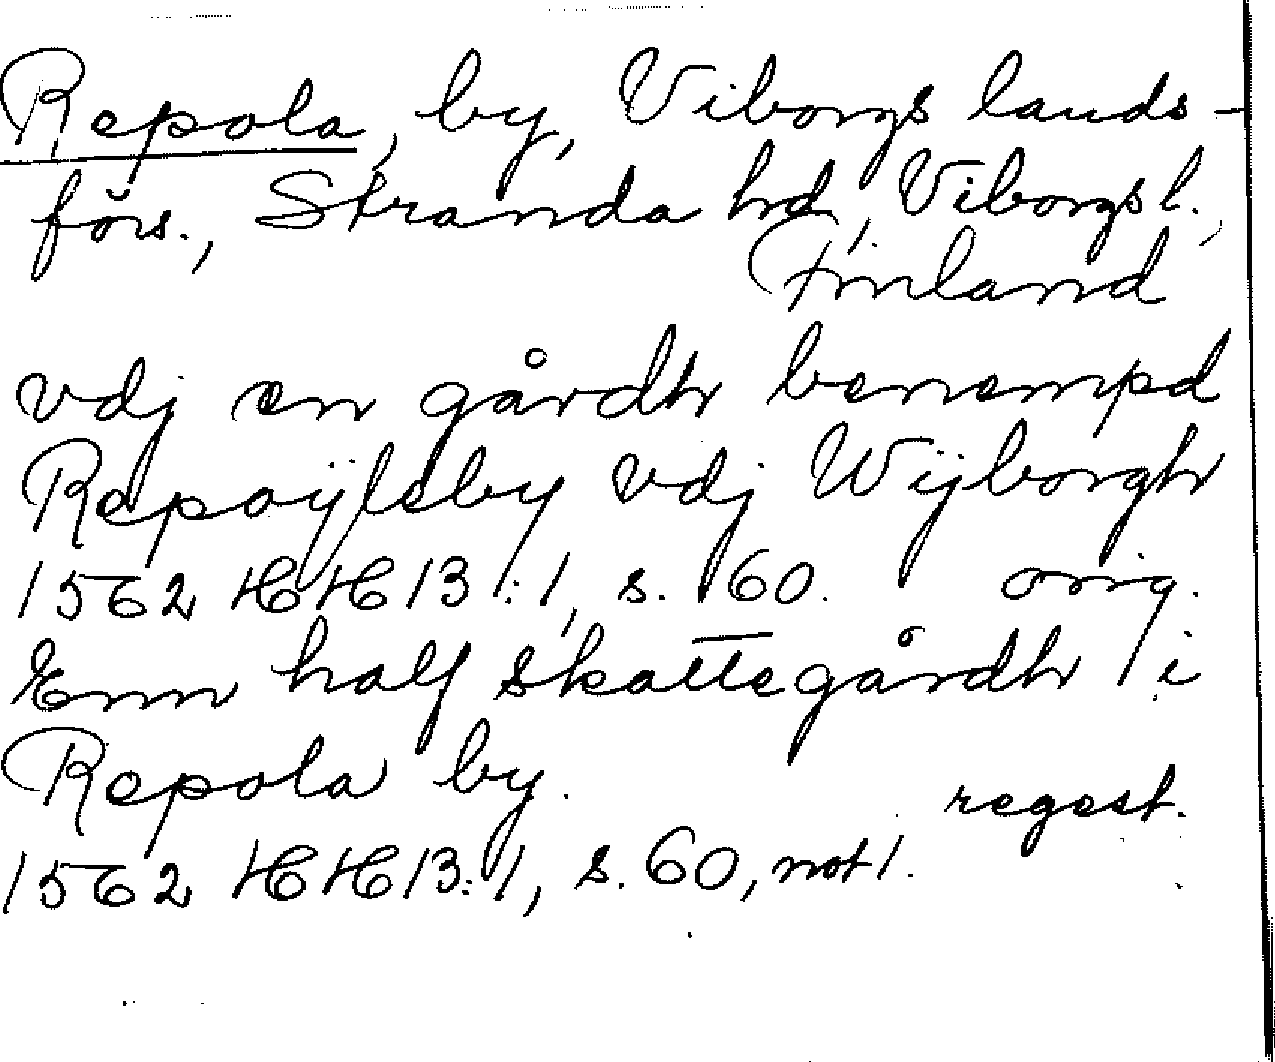 Repola, by, Viborgs lands-
förs., Stranda hd, Viborgs l.,
Finland
vdj en gårdh benempd
Repoÿleby vdj Wijborgh
1562 HH 13:1, s. 60. orig.
Enn half skattegårdh i
Repola by. regest.
1562 HH 13:1, s. 60, not 1.